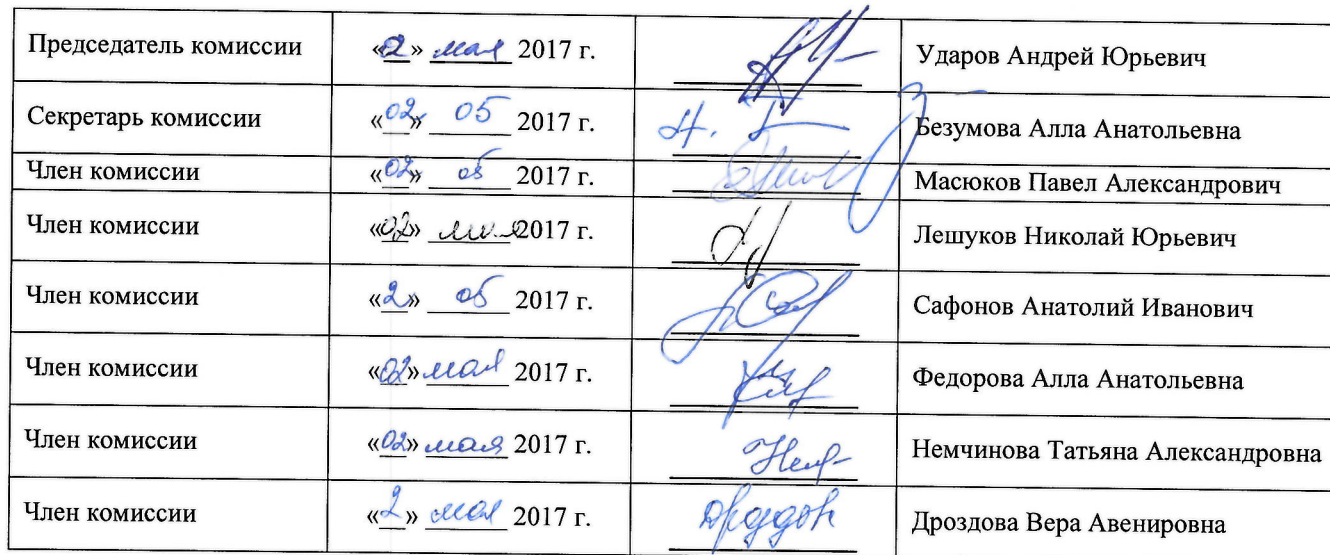 Председатель комиссии «2» мая 2017 г. Ударов Андрей Юрьевич
Секретарь комиссии «02» 05 2017 г. Безумова Алла Анатольевна
Член комиссии «02» 05 2017 г. Масюков Павел Александрович
Член комиссии «02» мая 2017 г. Лешуков Николай Юрьевич
Член комиссии «2» 05 2017 г. Сафонов Анатолий Иванович
Член комиссии «02» мая 2017 г. Федорова Алла Анатольевна
Член комиссии «02» мая 2017 г. Немчинова Татьяна Александровна
Член комиссии «2» мая 2017 г. Дроздова Вера Авенировна